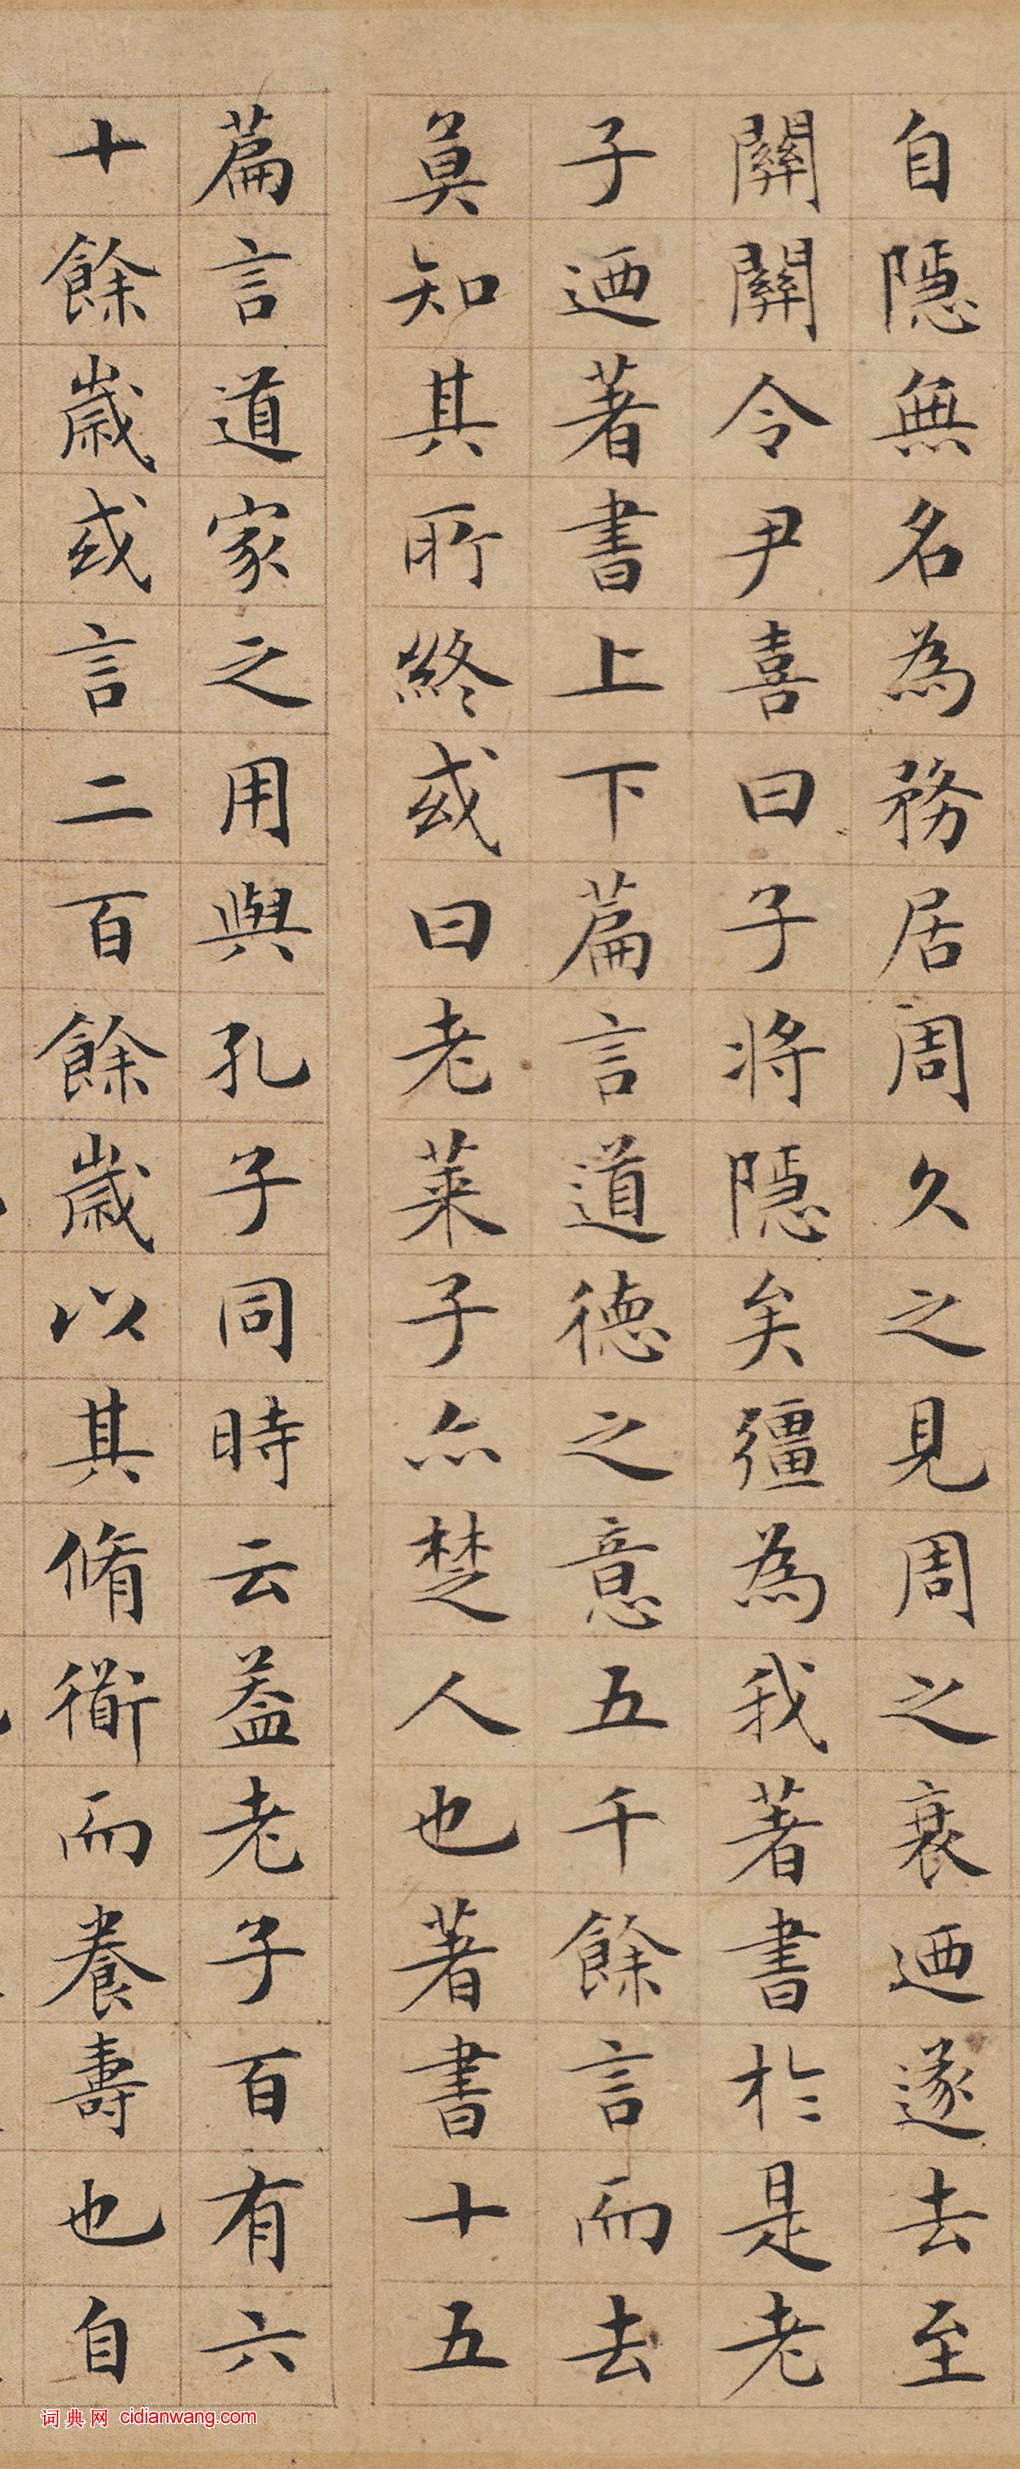 自隱無名為務居周久之見周之衰迺遂去至
關關令尹喜曰子將隱矣彊為我著書於是老
子迺著書上下篇言道德之意五千餘言而去
莫知其所終或曰老萊子亦楚人也著書十五
篇言道家之用與孔子同時云蓋老子百有六
十餘歲或言二百餘歲以其脩衜而養壽也自
词典网 cidianwang.com